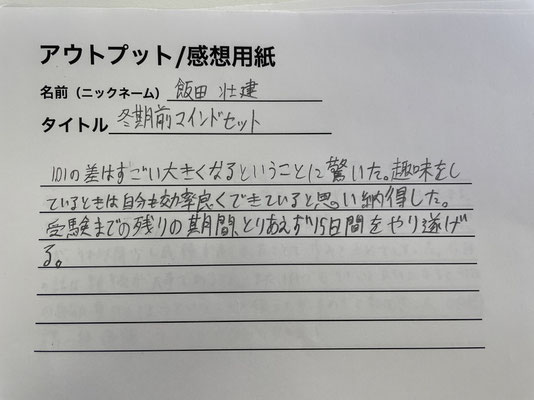 アウトプット/感想用紙
名前（ニックネーム） 飯田 壮建
タイトル 冬期前マインドセット
101の差はすごい大きくなるということに驚いた。趣味をし
ているときは自分も効率良くできていると思い納得した。
受験までの残りの期間、とりあえず15日間をやり遂げ
る。